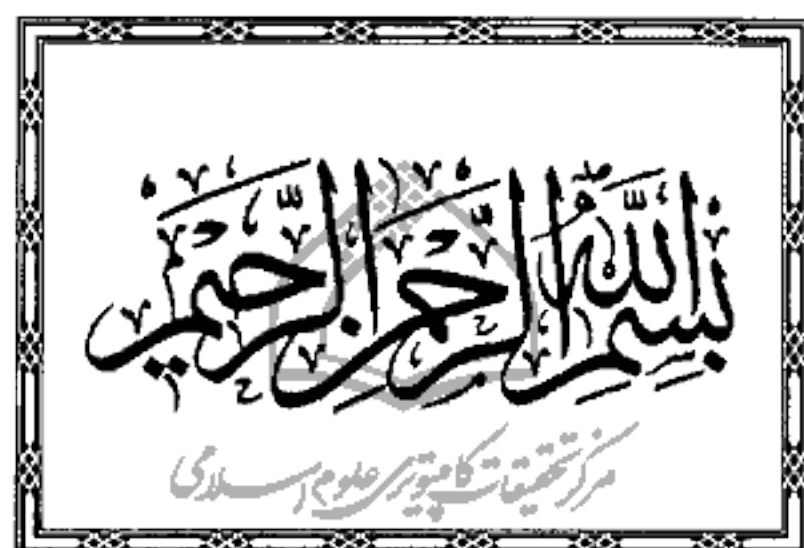 بسم الله الرحمن الرحيم
مرکز تحقیقات کامپیوتری علوم اسلامی